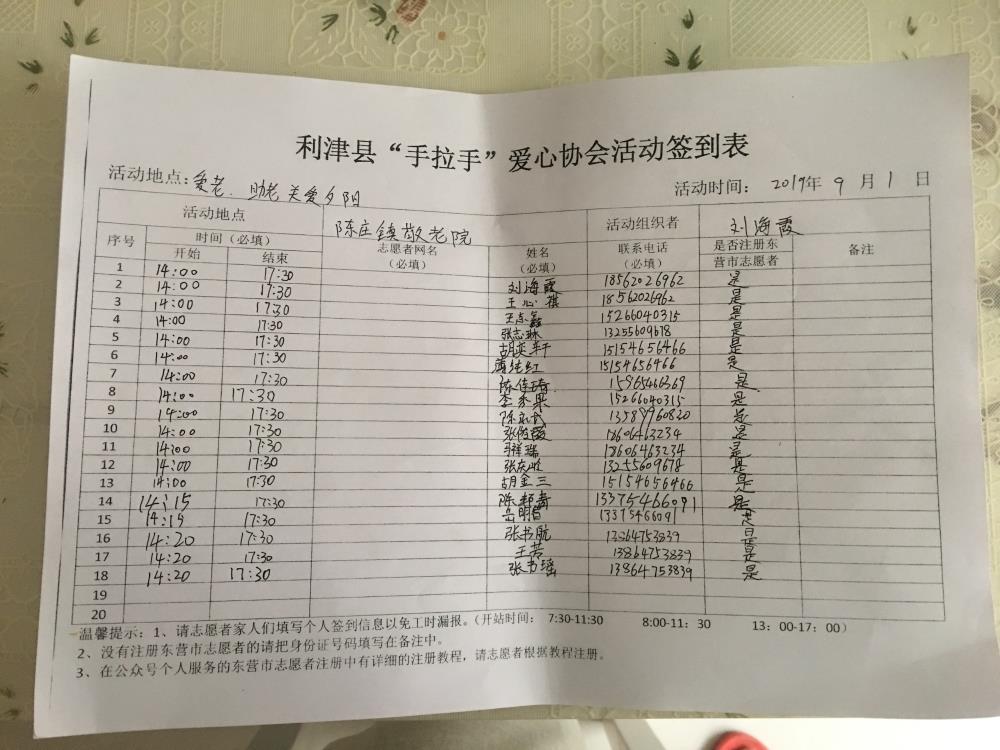 利津县“手拉手”爱心协会活动签到表
活动地点：爱老．助老 关爱夕阳 活动时间： 2019年 9 月 1 日
活动地点 陈庄镇敬老院 活动组织者 刘海霞
序号 时间（必填） 志愿者网名（必填） 姓名（必填） 联系电话（必填） 是否注册东营市志愿者 备注
开始 结束
1 14:00 17:30 刘海霞 18562026962 是
2 14:00 17:30 王心祺 18562026962 是
3 14:00 17:30 15266040315 是
4 14:00 17:30 张志琳 13255609678 是
5 14:00 17:30 胡奕轩 15154656466 是
6 14:00 17:30 薄纯红 15154656466 是
7 14:00 17:30 陈佳琦 15965466369 是
8 14:00 17:30 李秀果 15266040315 是
9 14:00 17:30 13589960820 是
10 14:00 17:30 张俊霞 18606463234 是
11 14:00 17:30 马祥瑞 18606463234 是
12 14:00 17:30 13255609678 是
13 14:00 17:30 胡金三 15154656466 是
14 14:15 17:30 13375466091 是
15 14:15 17:30 岳明香 13375466091 是
16 14:20 17:30 张书航 13864753839 是
17 14:20 17:30 王芳 13864753839 是
18 14:20 17:30 张书瑶 13864753839 是
19
20
温馨提示：1、请志愿者家人们填写个人签到信息以免工时漏报。（开站时间： 7:30-11:30 8:00-11：30 13：00-17：00）
2、没有注册东营市志愿者的请把身份证号码填写在备注中。
3、在公众号个人服务的东营市志愿者注册中有详细的注册教程，请志愿者根据教程注册。